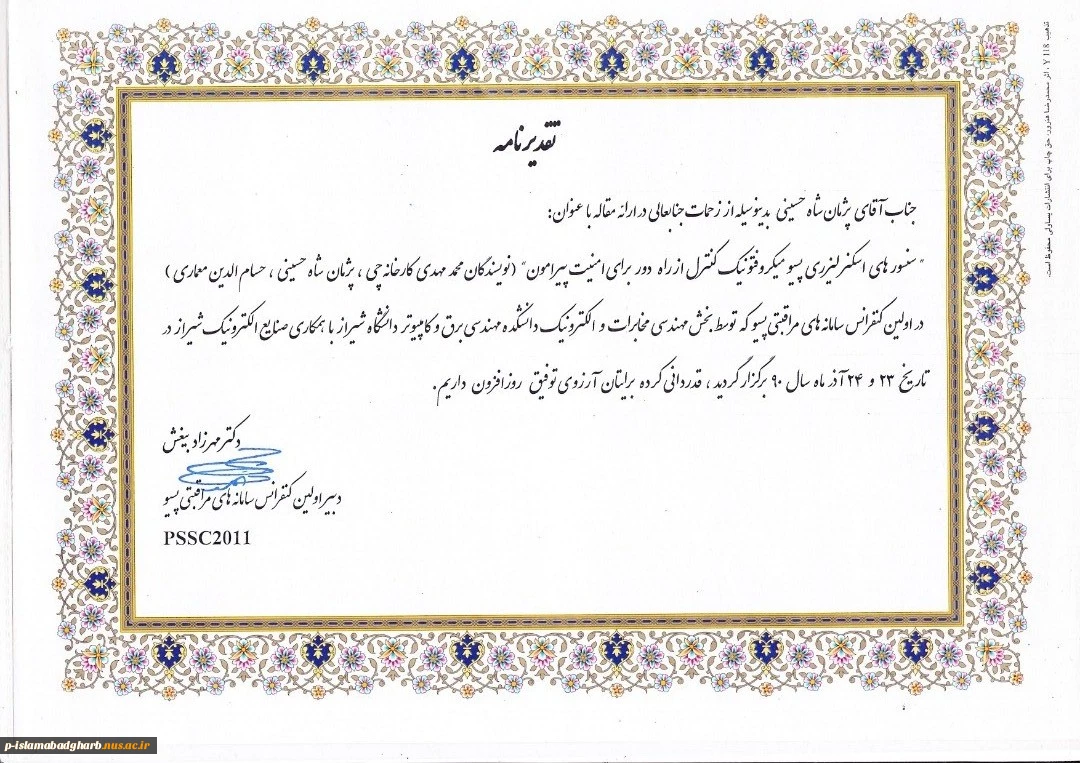 تقدیرنامه
جناب آقای پژمان شاه حسینی بدینوسیله از زحمات جنابعالی در ارائه مقاله با عنوان:
" سنسور های اسکنر لیزری پسیو میکروفتونیک کنترل از راه دور برای امنیت پیرامون" (نویسندگان محمد مهدی کارخانه چی ، پژمان شاه حسینی ، حسام الدین معماری )
در اولین کنفرانس سامانه های مراقبتی پسیو که توسط بخش مهندسی مخابرات و الکترونیک دانشکده مهندسی برق و کامپیوتر دانشگاه شیراز با همکاری صنایع الکترونیک شیراز در
تاریخ ۲۳ و ۲۴ آذر ماه سال ۹۰ برگزار گردید ، قدردانی کرده برایتان آرزوی توفیق روز افزون داریم.
دکتر مهرزاد بیغش
دبیر اولین کنفرانس سامانه های مراقبتی پسیو
PSSC2011
تذهیب Y 118 ، اثر محمدرضا هنرور، حق چاپ برای انتشارات یساولی محفوظ است.
p-islamabadgharb.nus.ac.ir